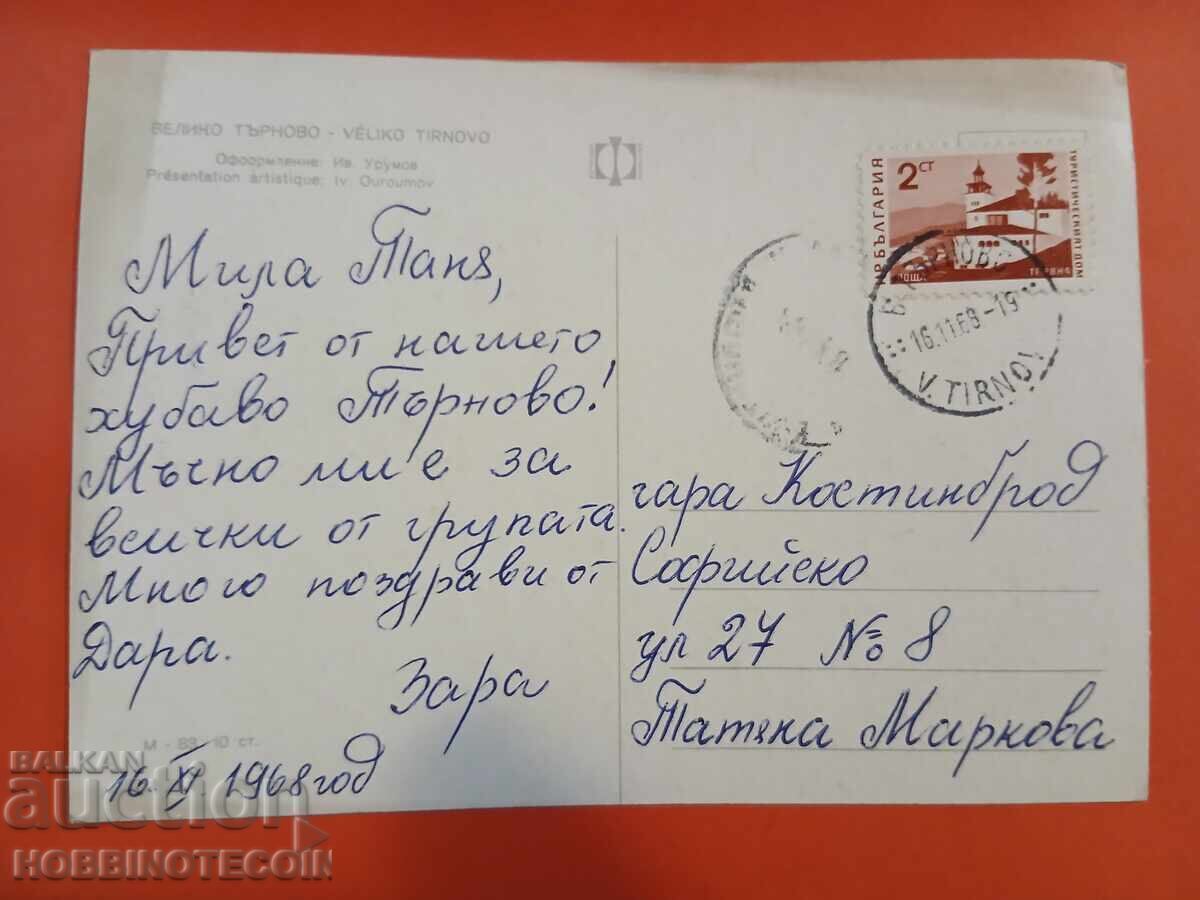 ВЕЛИКО ТЪРНОВО - VÉLIKO TIRNOVO
Оформление: Ив. Урумов
Présentation artistique: Iv. Ouroumov
Мила Таня,
Привет от нашето
хубаво Търново!
Мъчно ми е за
всички от групата.
Много поздрави от
Дара.
Зара
М - 83 10 ст.
16. XI. 1968 год
НР БЪЛГАРИЯ
2 СТ
ПОЩА
ТУРИСТИЧЕСКИЯТ ДОМ
16.11.68-19
V. TIRNOV
гара Костинброд
Софийско
ул 27 № 8
Татяна Маркова
BALKAN
auction
HOBBINOTECOIN